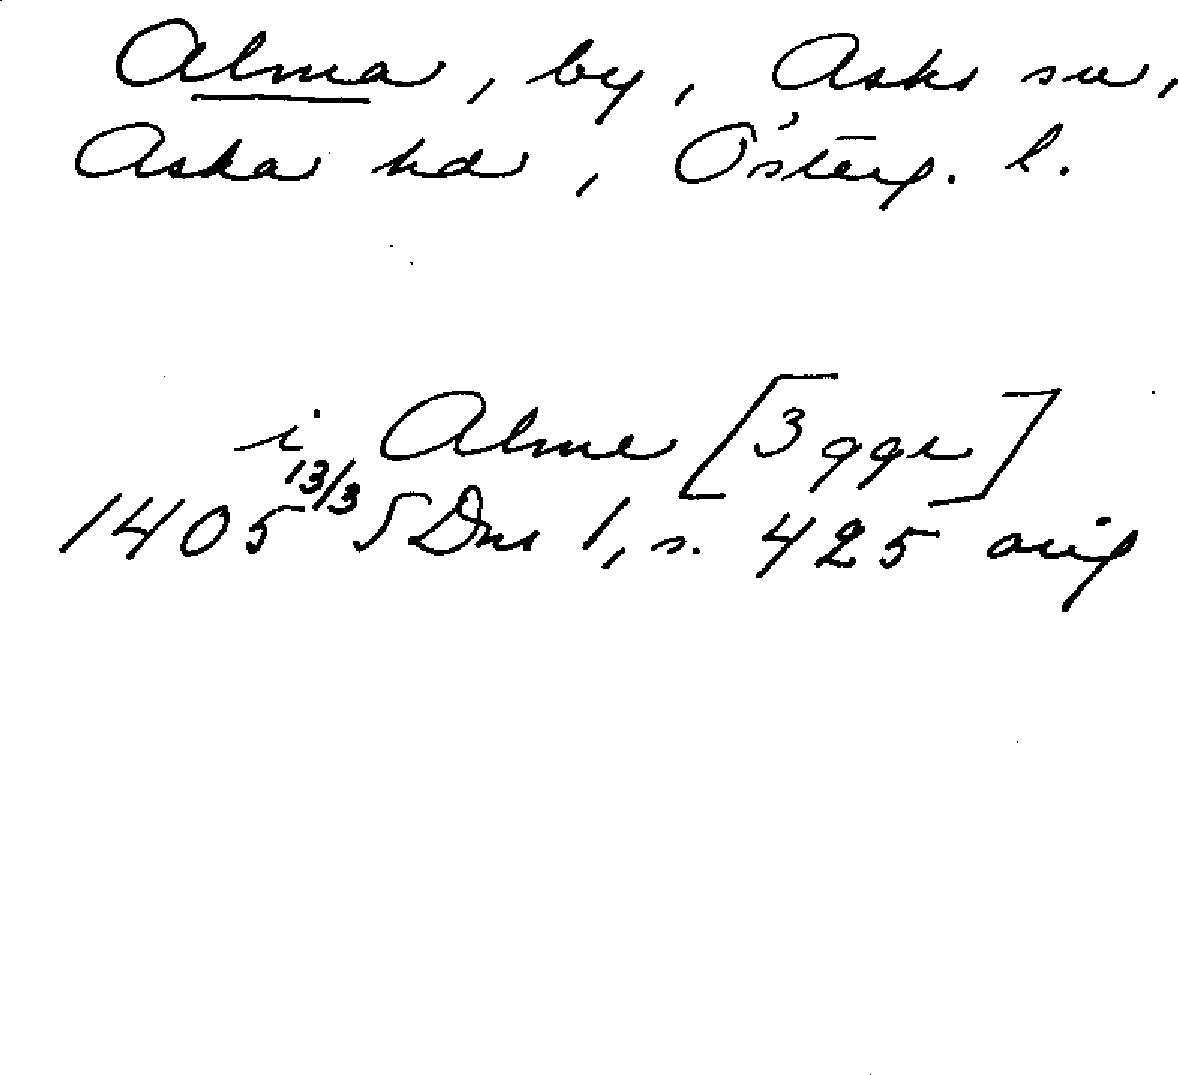 Alma, by, Asks sn,
Aska hd, Österg. l.
i Alme [3 ggr]
1405 13/3 SDns 1, s. 425 orig